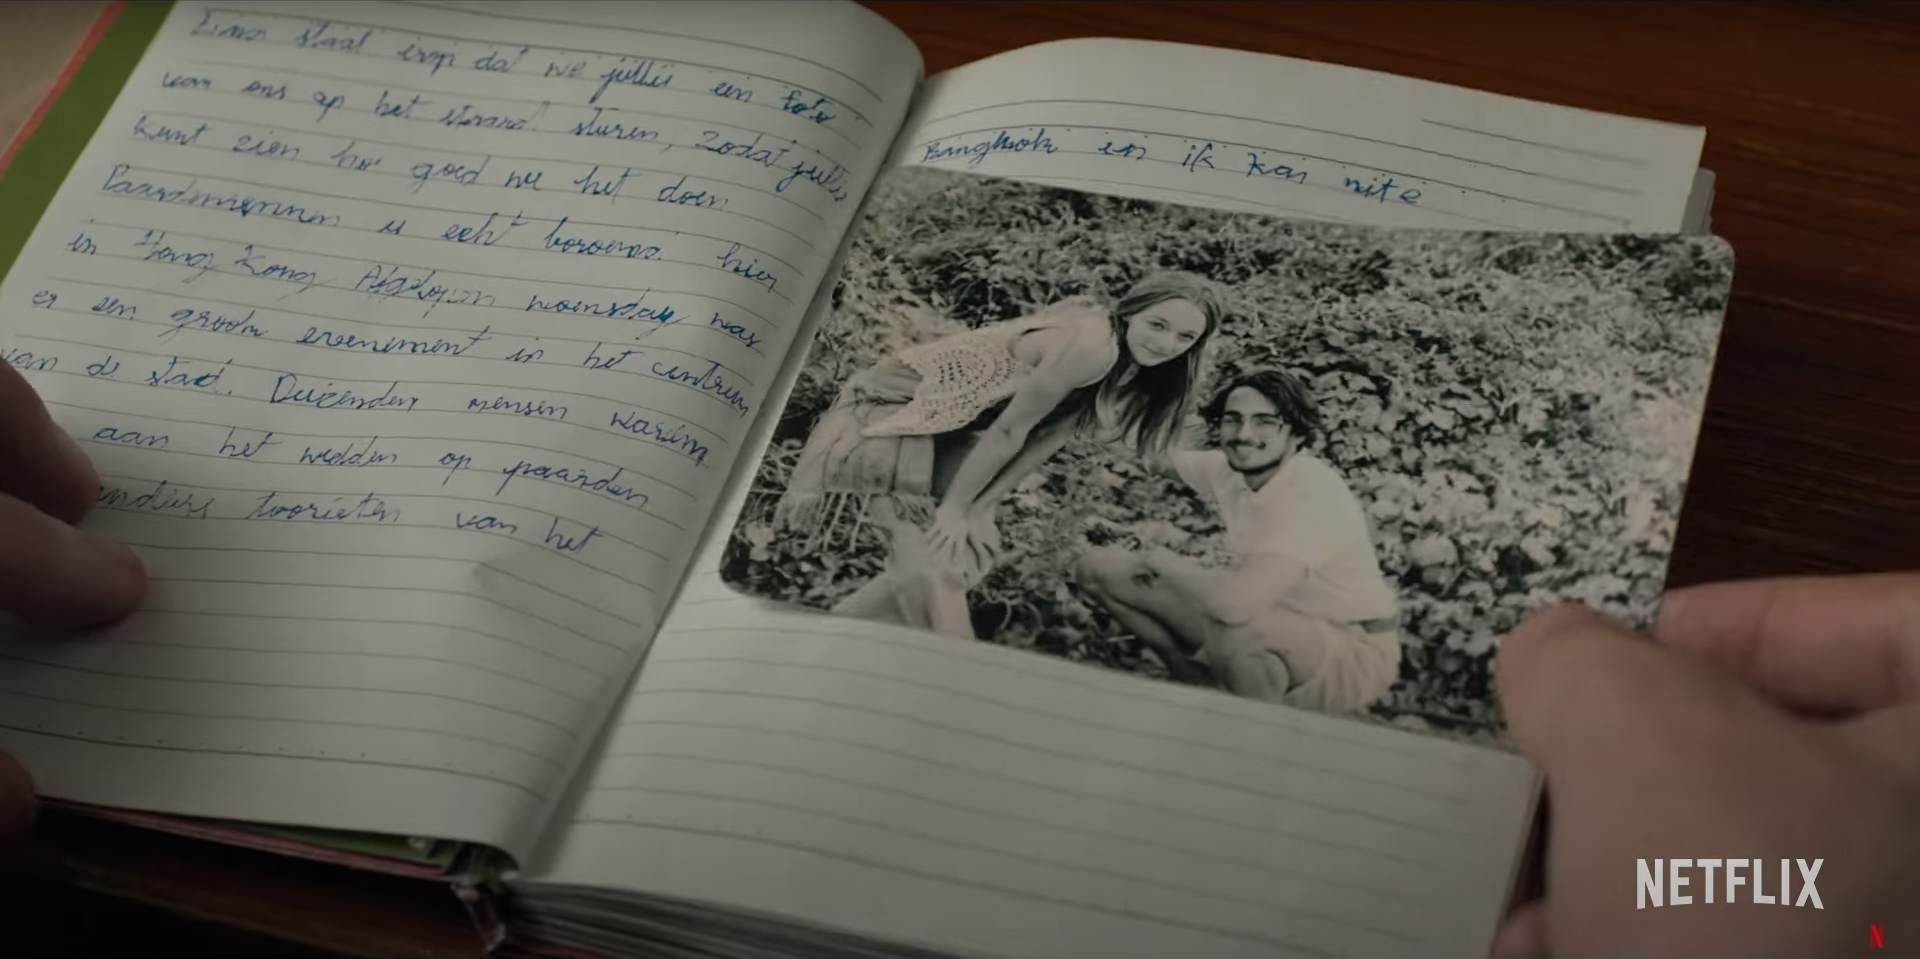 staat erop dat we jullie een foto
van ons op het strand sturen, zodat jullie
kunt zien hoe goed we het doen
Paardenrennen is echt beroemd hier
in Hong Kong Afgelopen woensday was
er een groom evenement in het centrum
van de stad. Duizenden mensen waren
aan het wedden op paarden
van het
Bangkok en ik kan niet
NETFLIX
N